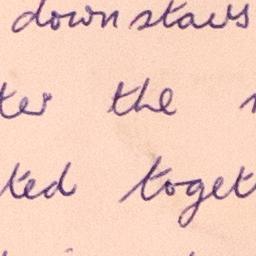 downstairs
ter the
ted toget